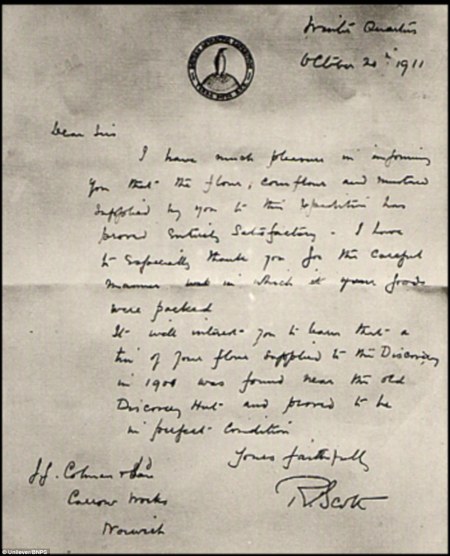 Winter Quarters
October 20th 1911
BRITISH ANTARCTIC EXPEDITION
TERRA NOVA R.Y.S.
Dear Sirs
I have much pleasure in informing
you that the flour, cornflour and mustard
supplied by you to this Expedition has
proved Entirely Satisfactory - I have
to Especially thank you for the careful
manner in which your goods
were packed
It will interest you to learn that a
tin of your flour supplied to the Discovery
in 1901 was found near the old
Discovery Hut and proved to be
in perfect condition
Yours faithfully
R Scott
J.J. Colman
Carrow Works
Norwich
© Unilever/BNPS